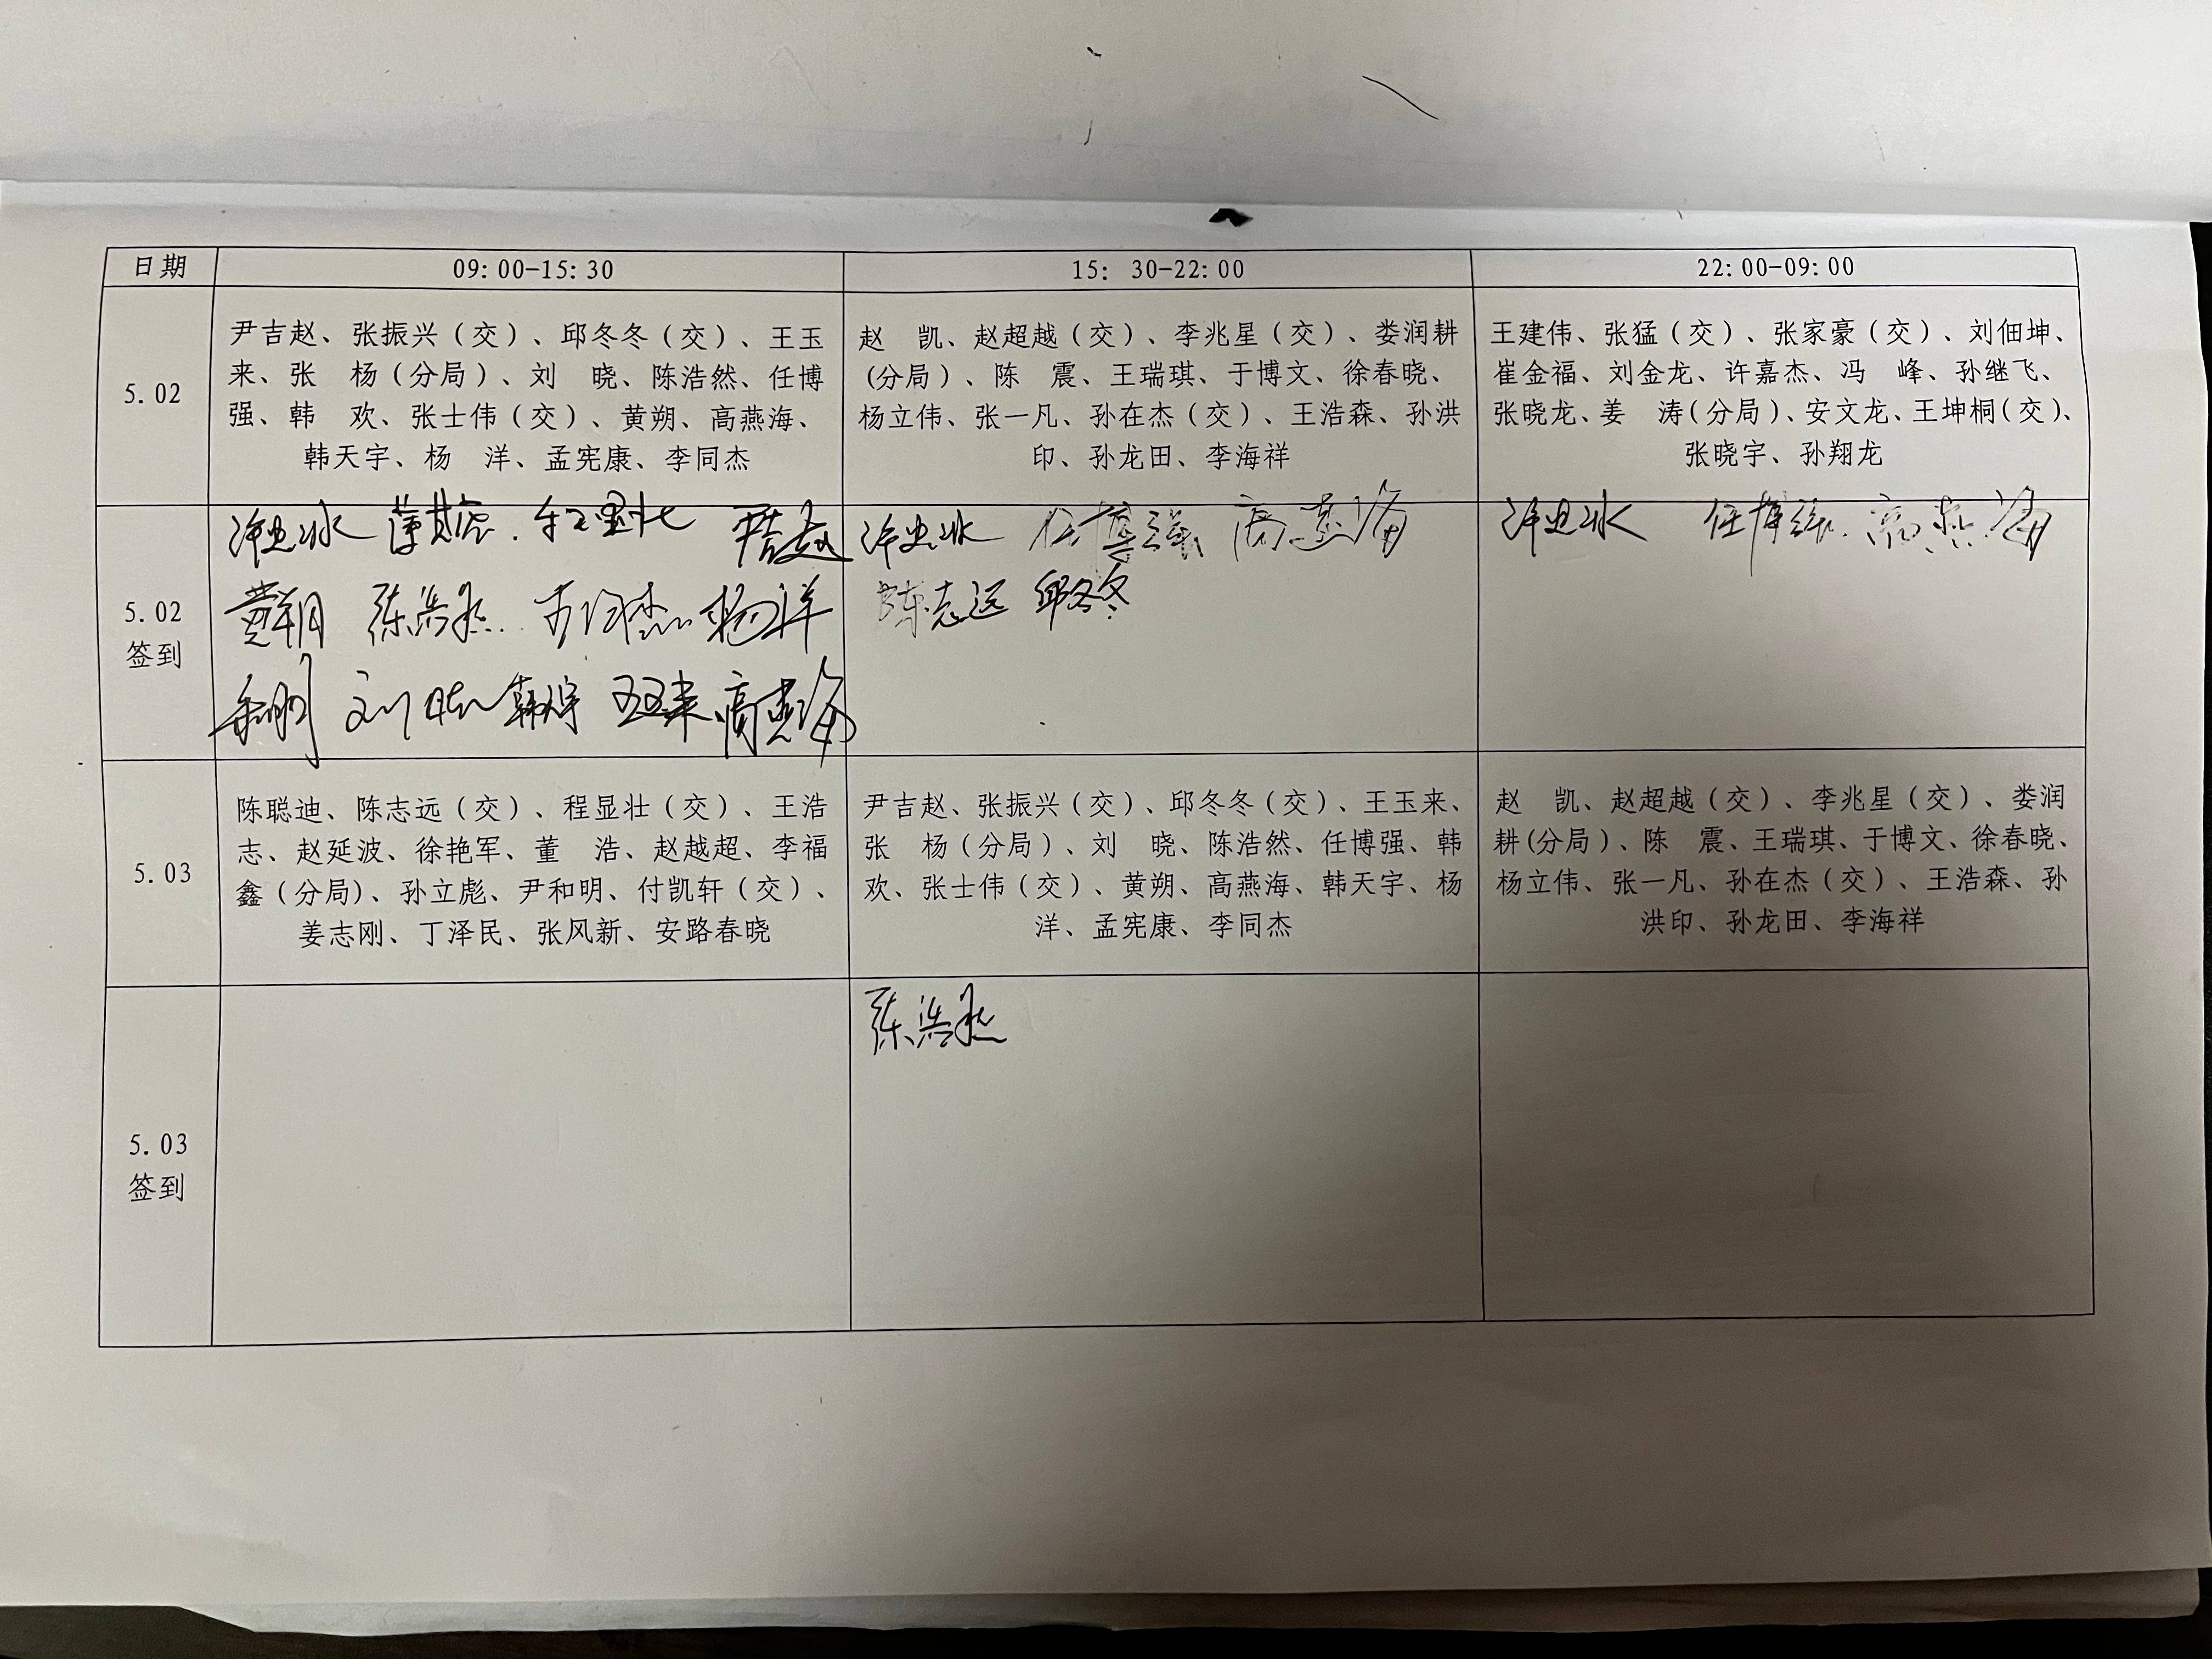 日期
09:00-15:30
15: 30-22:00
22:00-09:00
5.02
尹吉赵、张振兴（交）、邱冬冬（交）、王玉
来、张　杨（分局）、刘　晓、陈浩然、任博
强、韩　欢、张士伟（交）、黄朔、高燕海、
韩天宇、杨　洋、孟宪康、李同杰
赵　凯、赵超越（交）、李兆星（交）、娄润耕
(分局）、陈　震、王瑞琪、于博文、徐春晓、
杨立伟、张一凡、孙在杰（交）、王浩森、孙洪
印、孙龙田、李海祥
王建伟、张猛（交）、张家豪（交）、刘佃坤、
崔金福、刘金龙、许嘉杰、冯　峰、孙继飞、
张晓龙、姜　涛(分局)、安文龙、王坤桐(交)、
张晓宇、孙翔龙
5.02
签到
尹吉赵
黄朔 陈浩然 李同杰 杨洋
刘晓 韩天宇 王玉来 高燕海
任博强 高燕海
陈志远 邱冬冬
任博强 高燕海
5.03
陈聪迪、陈志远（交）、程显壮（交）、王浩
志、赵延波、徐艳军、董　浩、赵越超、李福
鑫（分局)、孙立彪、尹和明、付凯轩（交）、
姜志刚、丁泽民、张风新、安路春晓
尹吉赵、张振兴（交）、邱冬冬（交）、王玉来、
张　杨（分局）、刘　晓、陈浩然、任博强、韩
欢、张士伟（交）、黄朔、高燕海、韩天宇、杨
洋、孟宪康、李同杰
赵　凯、赵超越（交）、李兆星（交）、娄润
耕(分局）、陈　震、王瑞琪、于博文、徐春晓、
杨立伟、张一凡、孙在杰（交）、王浩森、孙
洪印、孙龙田、李海祥
5.03
签到
陈浩然